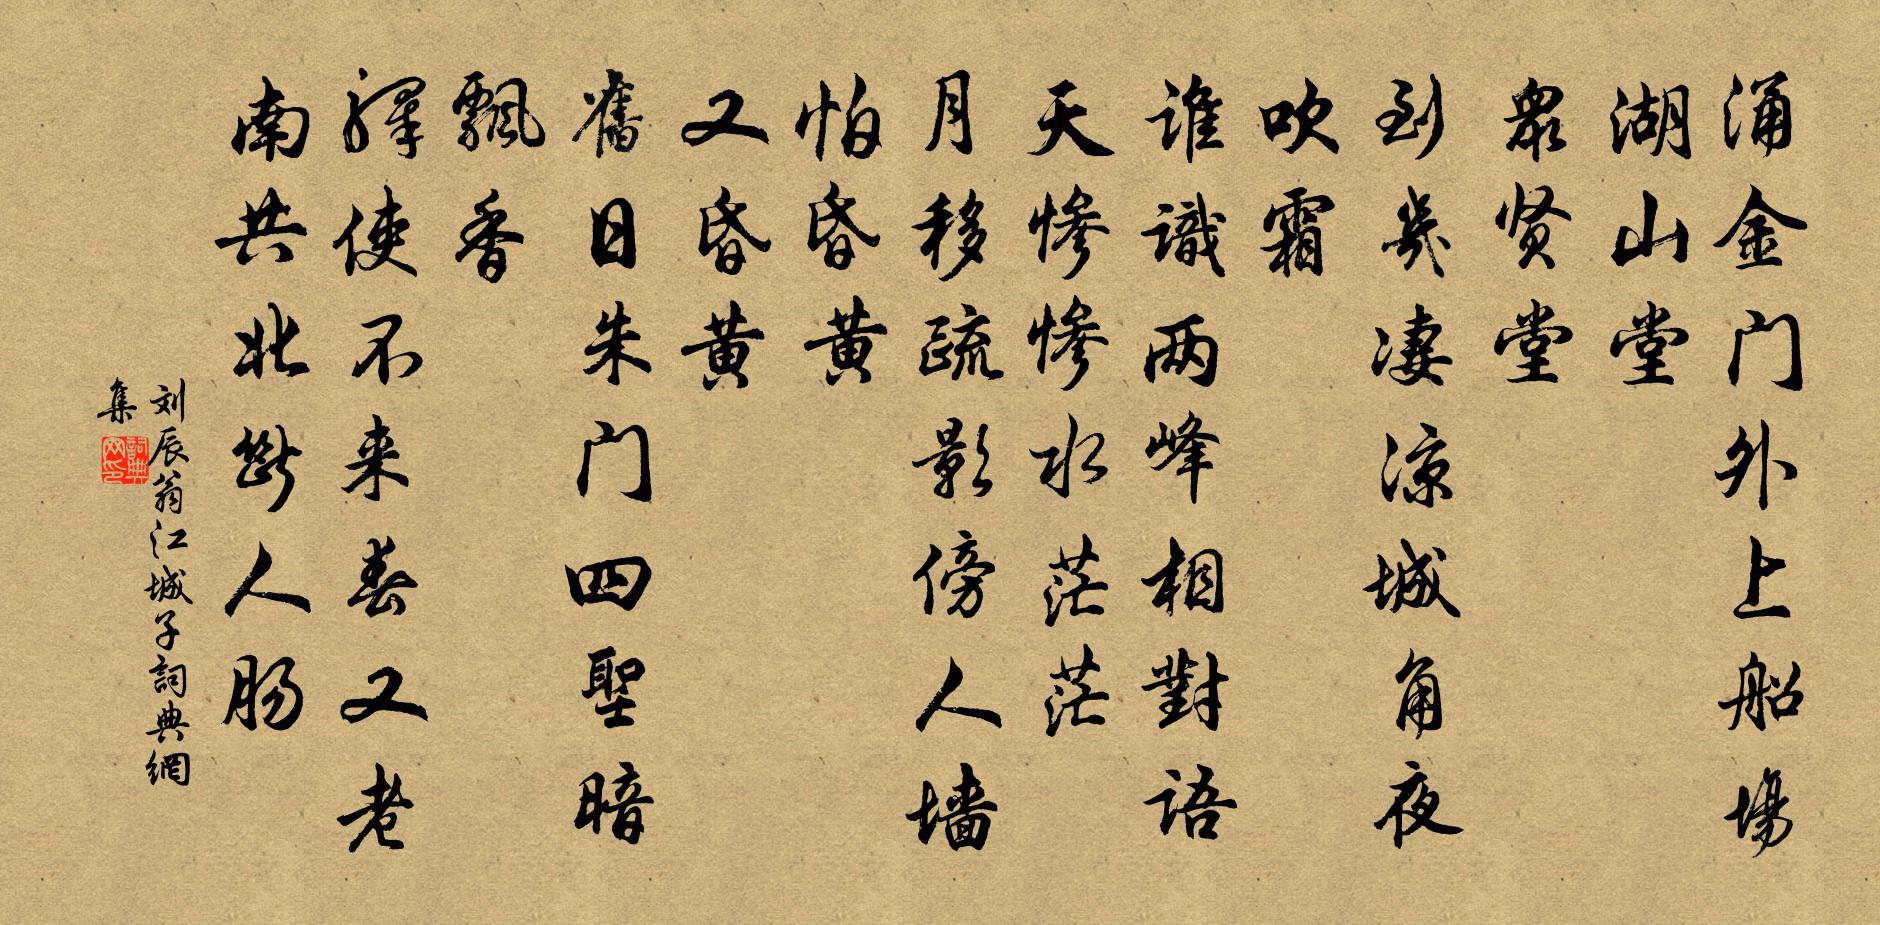 涌金门外上船場
湖山堂
衆贤堂
到幾凄凉城角夜
吹霜
谁識两峰相對語
天惨惨水茫茫
月移疏影傍人墙
怕昏黄
又昏黄
舊日朱门四聖暗
飄香
驛使不来春又老
南共北斷人肠
刘辰翁江城子詞典網
集
詞典
网印